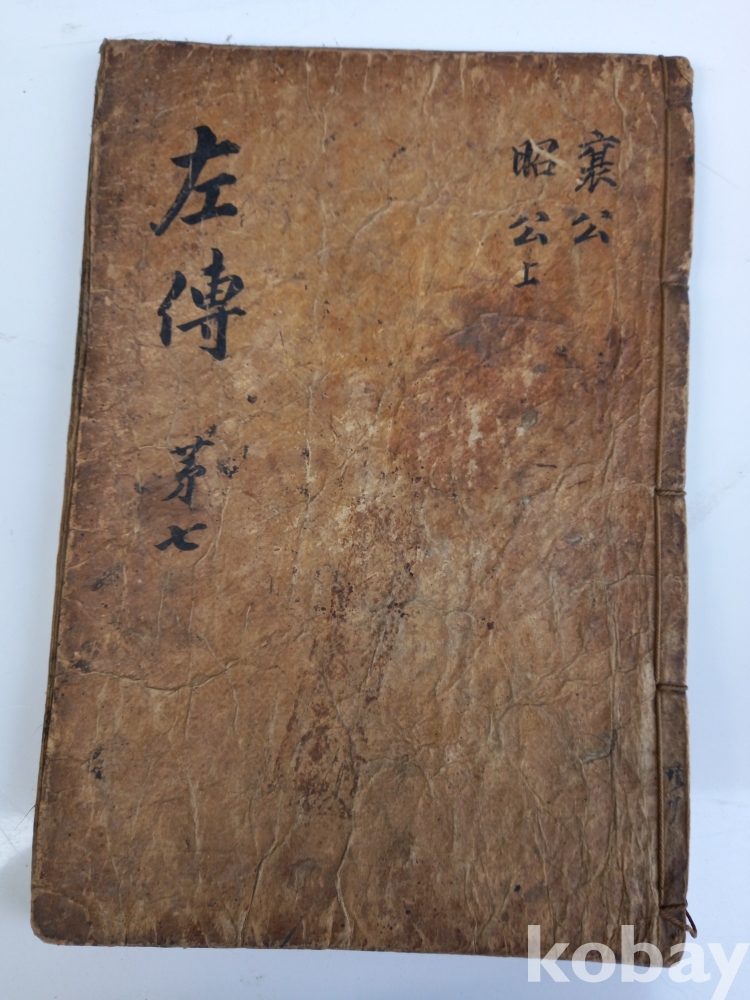 襄公
昭公上
左傳 苐七
kobay